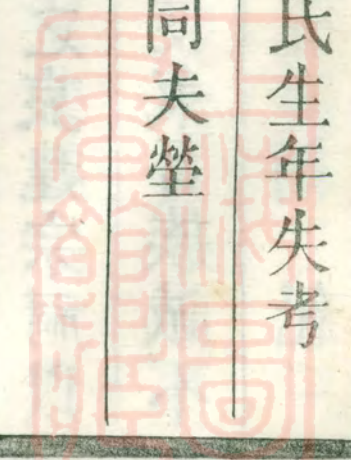 氏生年失考
同夫塋